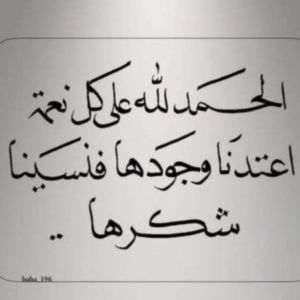 الحمد لله على كل نعمة
اعتدنا وجودها فنسينا
شكرها ..
baha_196